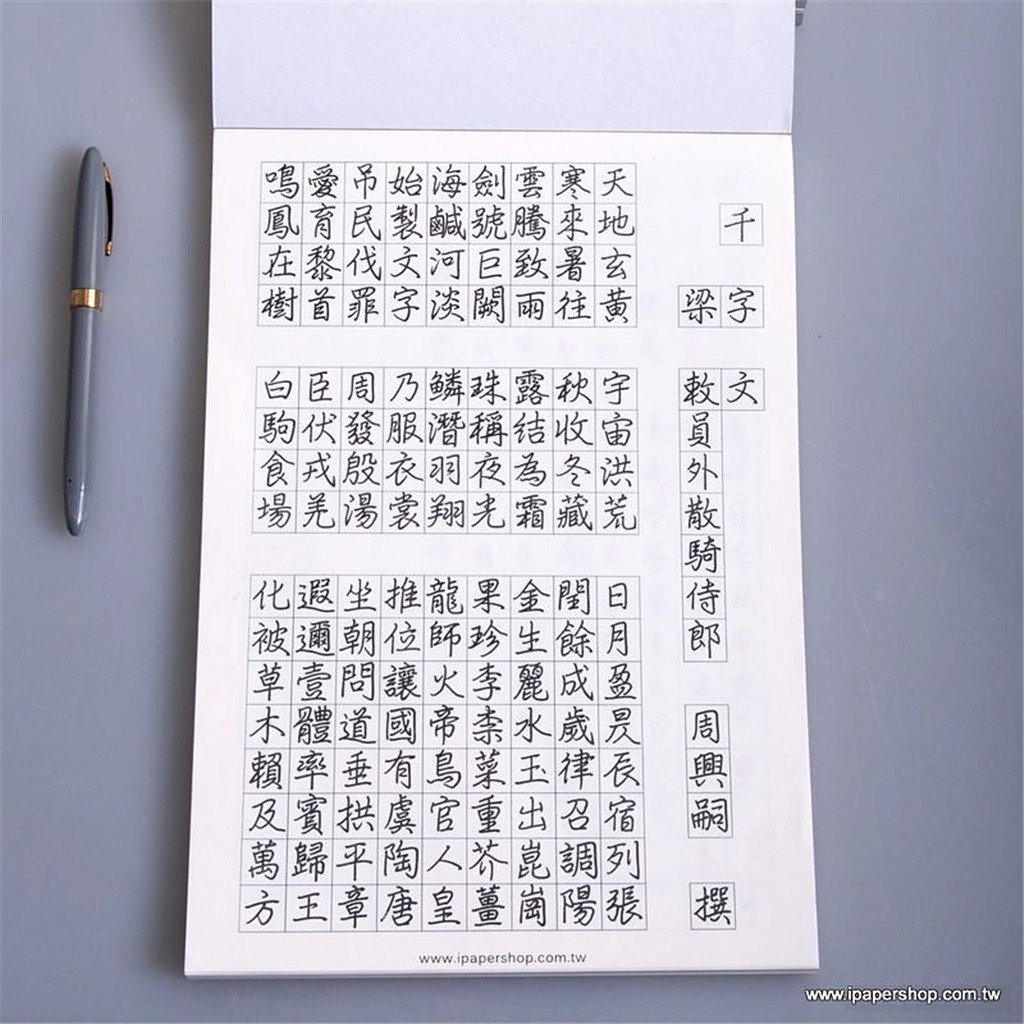 千字文
梁 敕員外散騎侍郎 周興嗣 撰
天地玄黃 宇宙洪荒 日月盈昃辰宿列張
寒來暑往 秋收冬藏 閏餘成歲律召調陽
雲騰致雨 露結為霜 金生麗水玉出崑崗
劍號巨闕 珠稱夜光 果珍李柰菜重芥薑
海鹹河淡 鱗潛羽翔 龍師火帝鳥官人皇
始製文字 乃服衣裳 推位讓國有虞陶唐
吊民伐罪 周發殷湯 坐朝問道垂拱平章
愛育黎首 臣伏戎羌 遐邇壹體率賓歸王
鳴鳳在樹 白駒食場 化被草木賴及萬方
www.ipapershop.com.tw
www.ipapershop.com.tw